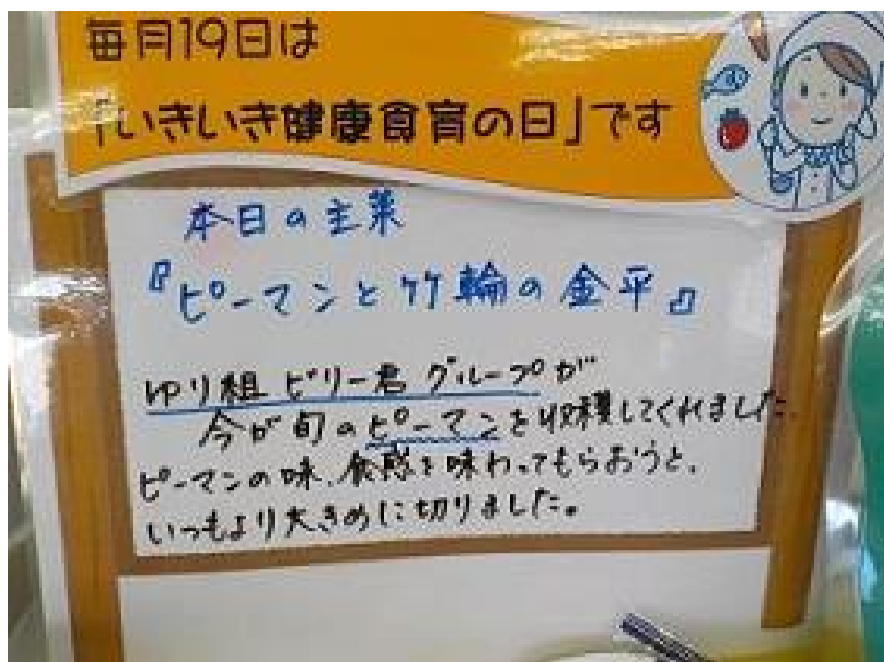 毎月19日は
「いきいき健康食育の日」です
本日の主菜
『ピーマンと竹輪の金平』
ゆり組 ビリー君 グループが
今が旬のピーマンを収穫してくれました。
ピーマンの味、食感を味わってもらおうと、
いつもより大きめに切りました。